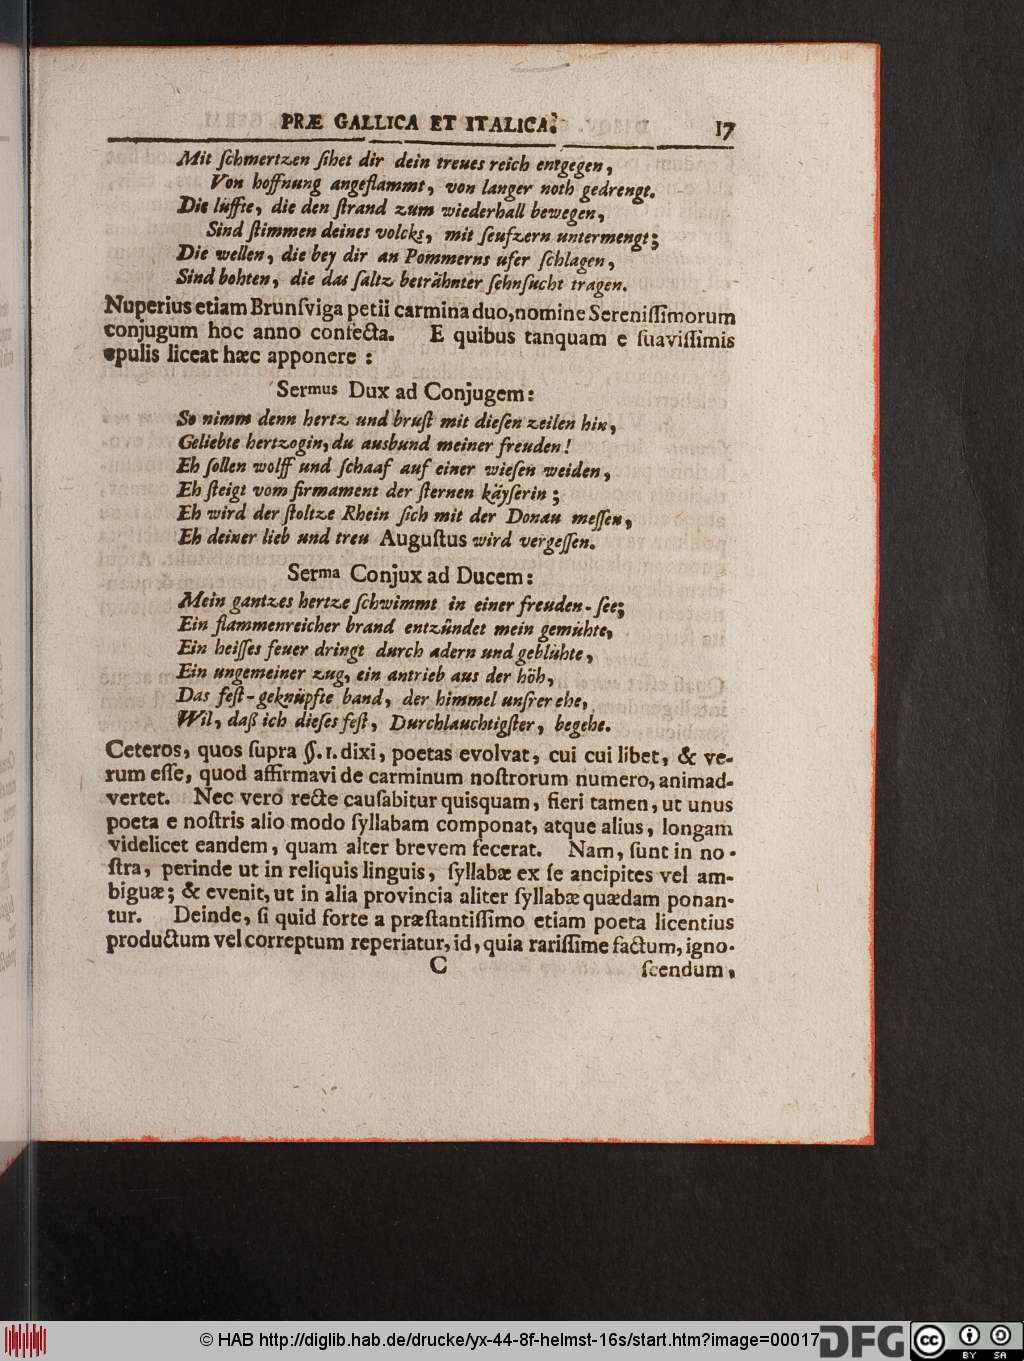 PRÆ GALLICA ET ITALICA. 17
Mit ſchmertzen ſihet dir dein treues reich entgegen,
Von hoffnung angeflammt, von langer noth gedrengt.
Die lüffte, die den ſtrand zum wiederhall bewegen,
Sind ſtimmen deines volcks, mit ſeufzern untermengt;
Die wellen, die bey dir an Pommerns ufer ſchlagen,
Sind bohten, die das ſaltz beträhnter ſehnſucht tragen.
Nuperius etiam Brunſviga petii carmina duo, nomine Sereniſſimorum
conjugum hoc anno confecta. E quibus tanquam e ſuaviſſimis
epulis liceat hæc apponere :
Sermus Dux ad Conjugem:
So nimm denn hertz und bruſt mit dieſen zeilen hin,
Geliebte hertzogin, du ausbund meiner freuden!
Eh ſollen wolff und ſchaaf auf einer wieſen weiden,
Eh ſteigt vom firmament der ſternen käyſerin ;
Eh wird der ſtoltze Rhein ſich mit der Donau meſſen,
Eh deiner lieb und treu Auguſtus wird vergeſſen.
Serma Conjux ad Ducem:
Mein gantzes hertze ſchwimmt in einer freuden-ſee;
Ein flammenreicher brand entzündet mein gemühte,
Ein heiſſes feuer dringt durch adern und geblühte,
Ein ungemeiner zug, ein antrieb aus der höh,
Das feſt-geknüpfte band, der himmel unſrer ehe,
Wil, daß ich dieſes feſt, Durchlauchtigſter, begehe.
Ceteros, quos ſupra §. 1. dixi, poetas evolvat, cui cui libet, & ve-
rum eſſe, quod affirmavi de carminum noſtrorum numero, animad-
vertet. Nec vero recte cauſabitur quisquam, fieri tamen, ut unus
poeta e noſtris alio modo ſyllabam componat, atque alius, longam
videlicet eandem, quam alter brevem fecerat. Nam, ſunt in no-
ſtra, perinde ut in reliquis linguis, ſyllabæ ex ſe ancipites vel am-
biguæ; & evenit, ut in alia provincia aliter ſyllabæ quædam ponan-
tur. Deinde, ſi quid forte a præſtantiſſimo etiam poeta licentius
productum vel correptum reperiatur, id, quia rariſſime factum, igno-
C ſcendum,
© HAB http://diglib.hab.de/drucke/yx-44-8f-helmst-16s/start.htm?image=00017
DFG
cc BY SA